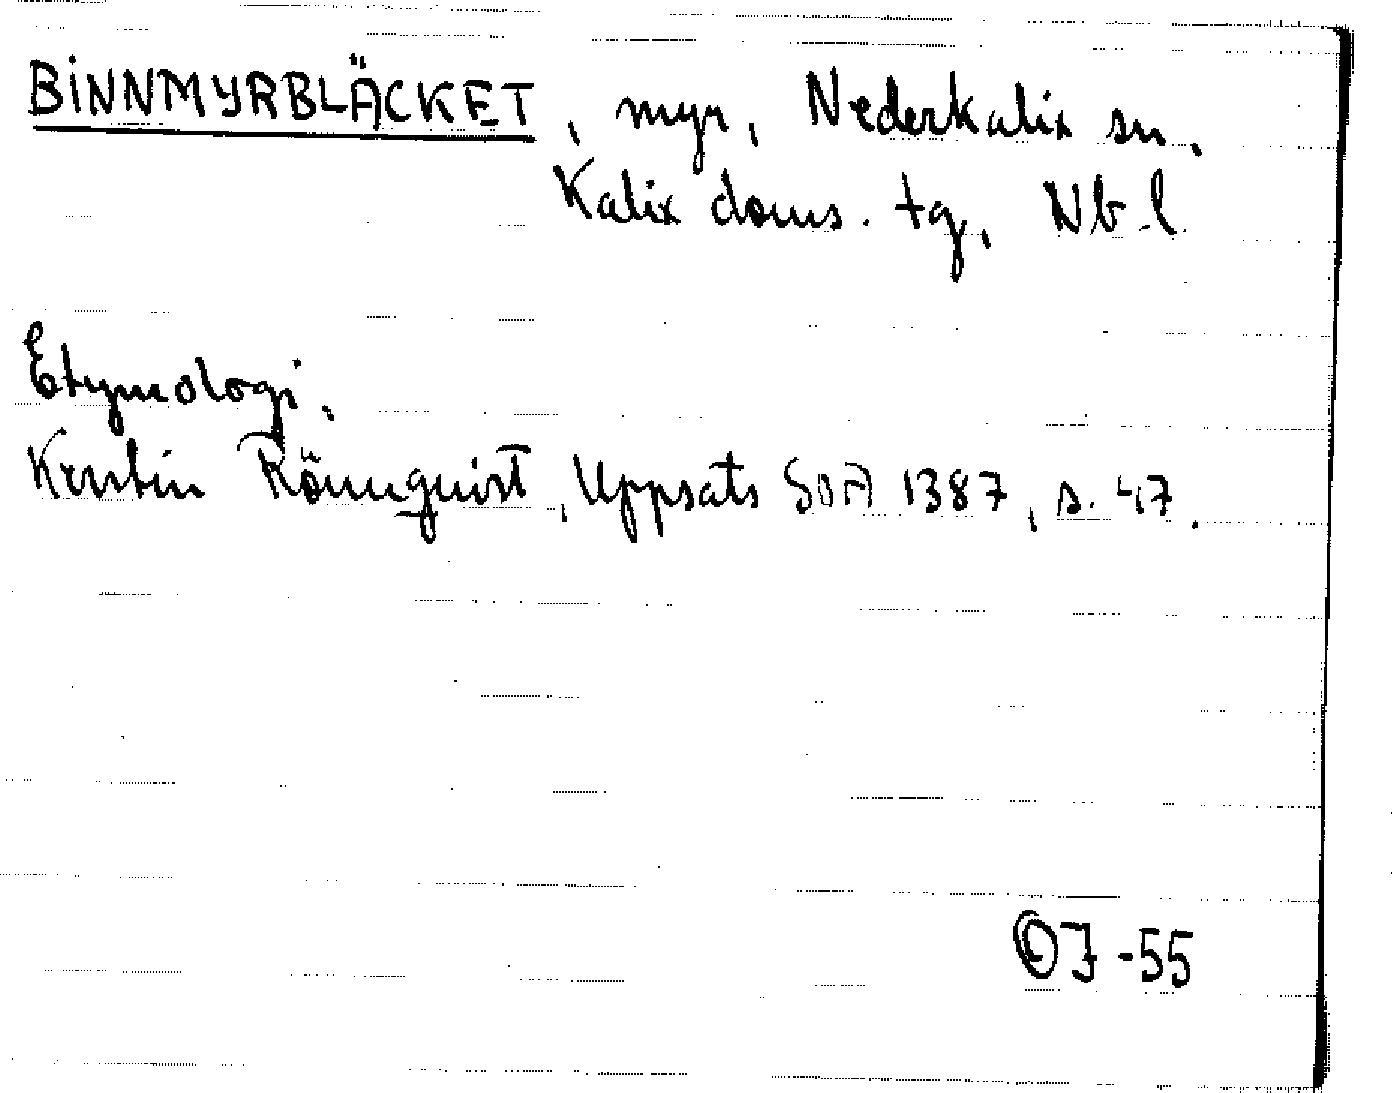 BINNMYRBLÄCKET, myr, Nederkalix sn,
Kalix doms. tg, Nb. l.
Etymologi,
Kerstin Rönnquist, Uppsats SOA 1387, s. 47.
OJ-55